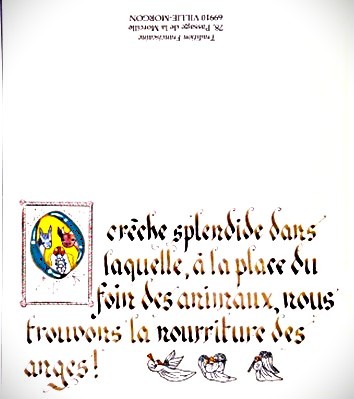 Tradition Franciscaine
78, Passage de la Morcille
69910 VILLIE-MORGON
O crèche splendide dans
laquelle, à la place du
foin des animaux, nous
trouvons la nourriture des
anges!